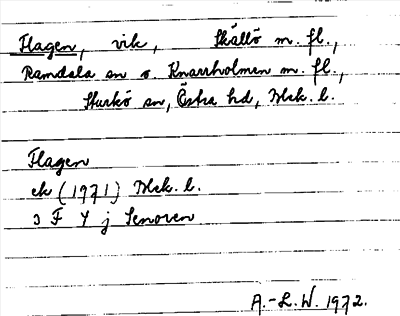 Flagen, vik, Skällö m. fl.,
Ramdala sn o. Knarrholmen m. fl.,
Sturkö sn, Östra hd, Blek. l.
Flagen
ek (1971) Blek. l.
3 F 4 j Senoren
A.-L. W. 1972.